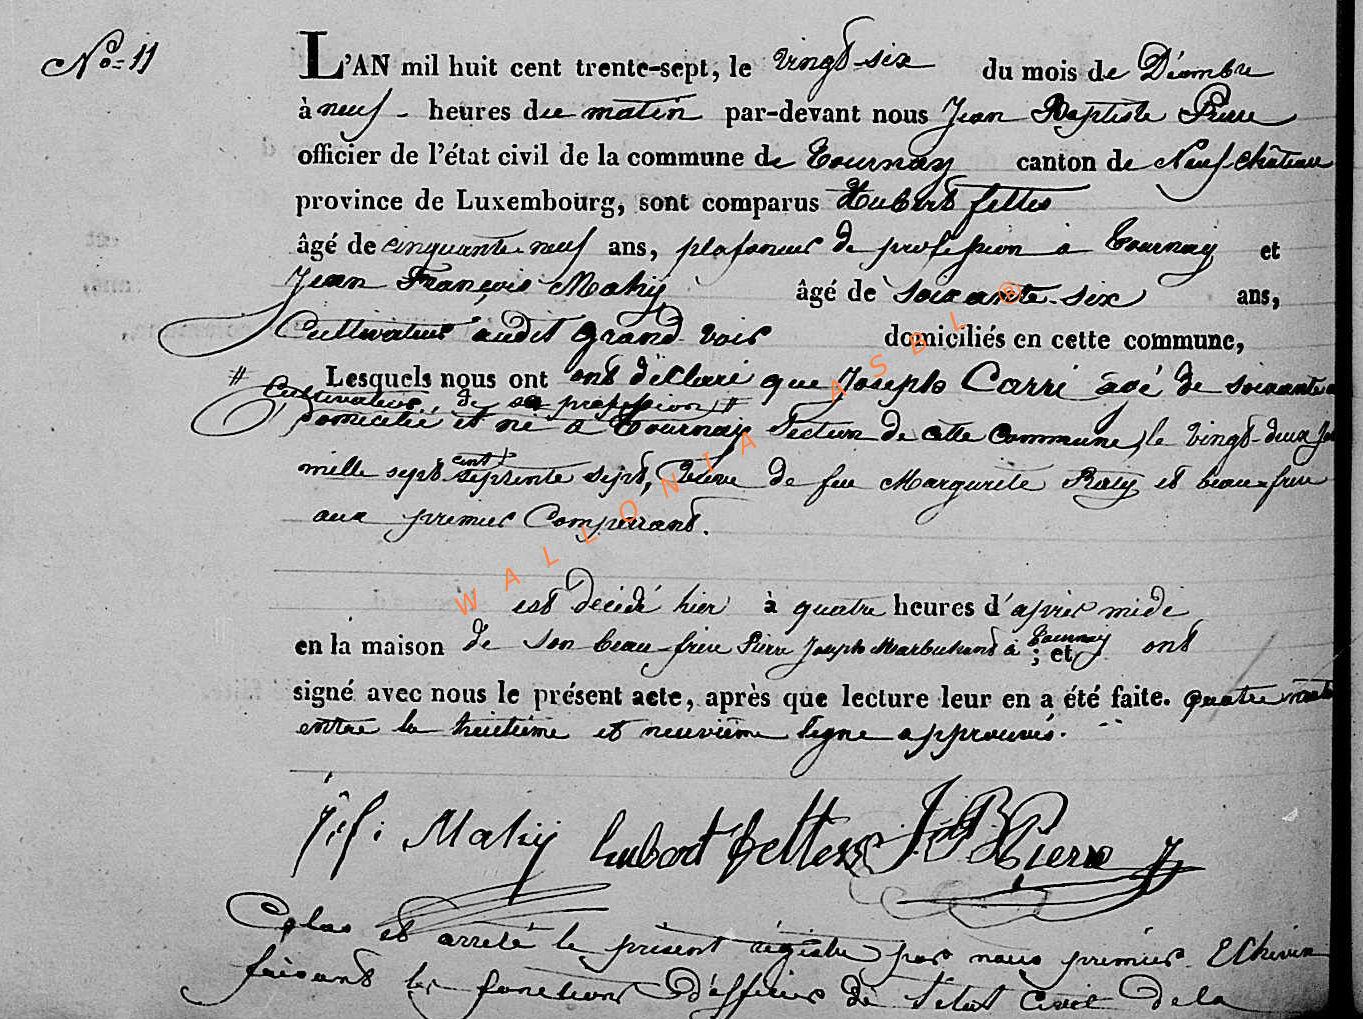 No= 11
L'AN mil huit cent trente-sept, le vingt-six du mois de Décembre
à neuf - heures du matin par-devant nous Jean Baptiste Pierre
officier de l'état civil de la commune de Tournay canton de Neufchâteau
province de Luxembourg, sont comparus Hubert fettes
âgé de cinquante-neuf ans, plafoneur de profession à Tournay et
Jean François Mahij âgé de soixante-six ans,
Cultivateur audit grand voir domiciliés en cette commune,
Lesquels nous ont ont déclaré que Joseph Carri âgé de soixante
# Cultivateur, de sa profession #
domicilié et né a Tournay Section de cette Commune, le vingt-deux
mille sept cent septente sept, Veuve de feu Margurite Roly et beau frere
aux premier Comperrant.
est décédé hier à quatre heures d'aprèr midi
en la maison de Son beau-frere Pierre Joseph Marbehand à Tournay ; et ont
signé avec nous le présent acte, après que lecture leur en a été faite. quatre mots
entre la huitième et neuvième ligne approuvés.
J: f: Mahij hubert fettes J B Pierre
Colos et arrêté le présent régistre par nous premier Echevin
faisant les fonctions d'officier de l'etat Civil de la
WALLONIA ASBL ®